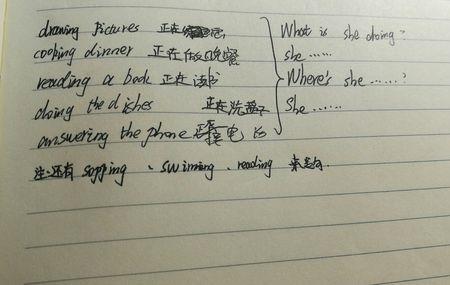 drawing Pictures 正在画画
cooking dinner 正在做晚餐
reading a book 正在读书
doing the dishes 正在洗盘子
answering the phone 接电话
What is she doing?
she ......
Where's she ......?
She ......
注:还有 sopping 、swimming 、reading